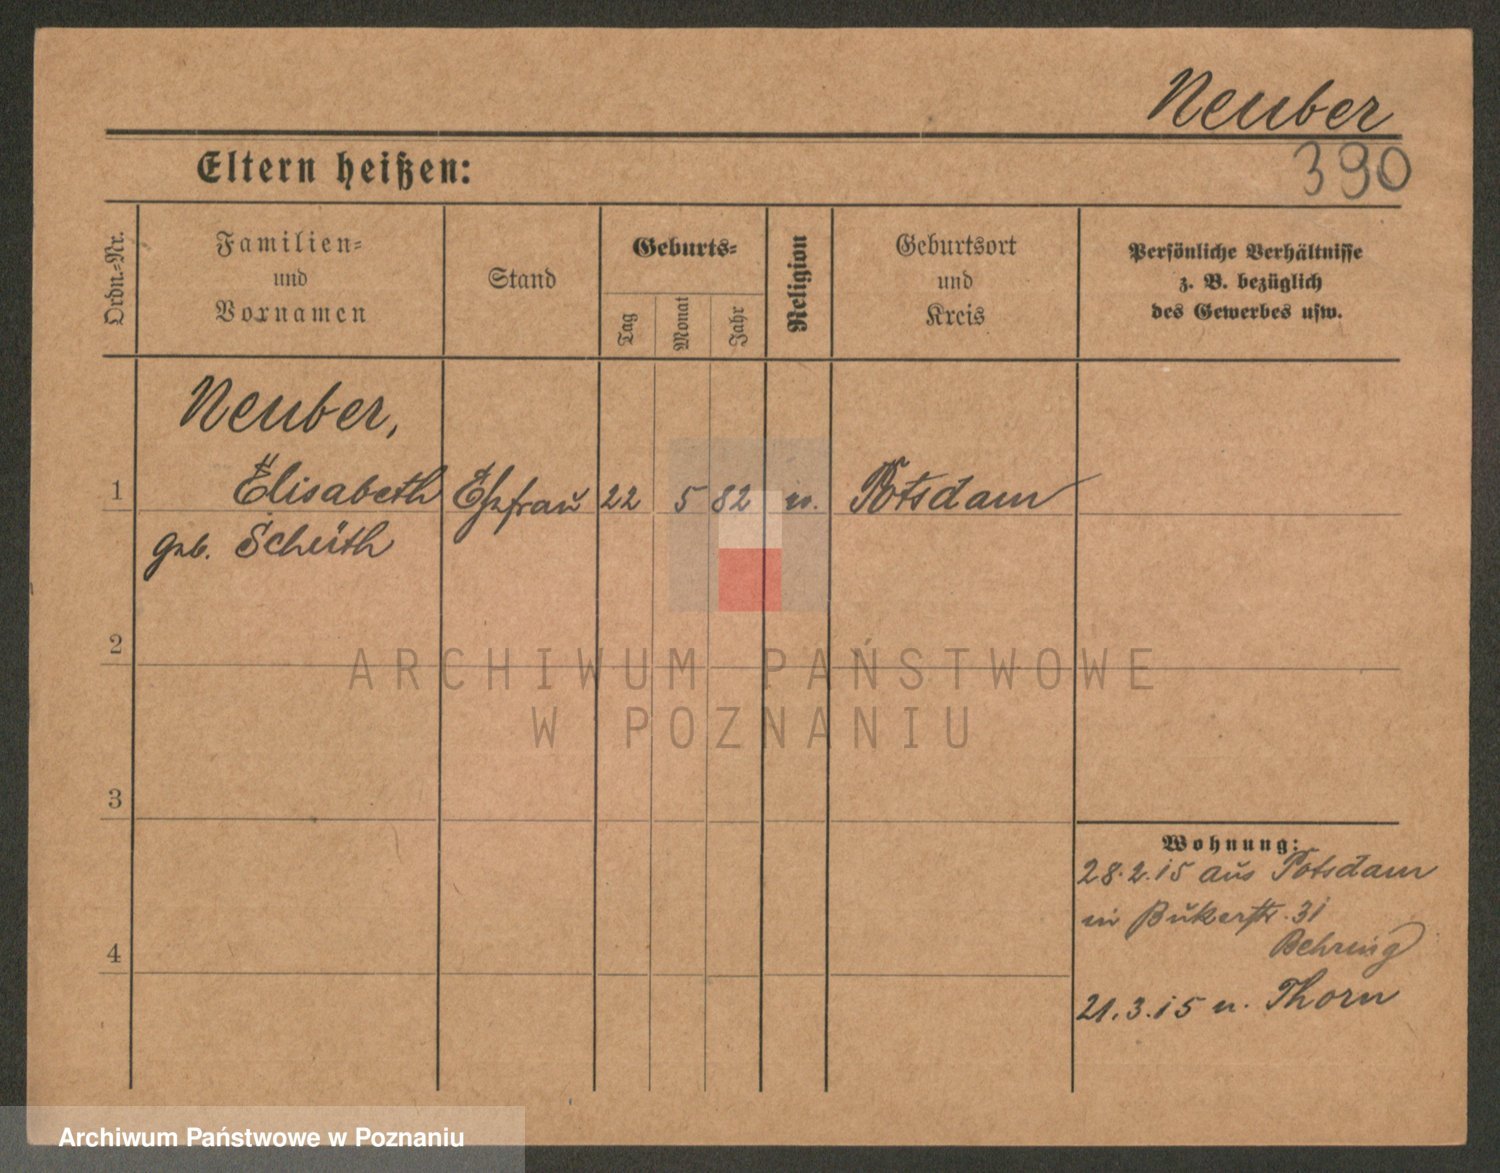 Neuber
390
Eltern heißen:
Ordn.-Nr.
Familien-
und
Vornamen
Stand
Geburts-
Tag
Monat
Jahr
Religion
Geburtsort
und
Kreis
Persönliche Verhältnisse
z. B. bezüglich
des Gewerbes usw.
Neuber,
1 Elisabeth Ehefrau 22 5 82 Potsdam
geb. Scheith
2
3
4
Wohnung:
28.2.15 aus Potsdam
in Bukerstr. 31
Behring
21.3.15 n. Thorn
ARCHIWUM PAŃSTWOWE
W POZNANIU
Archiwum Państwowe w Poznaniu